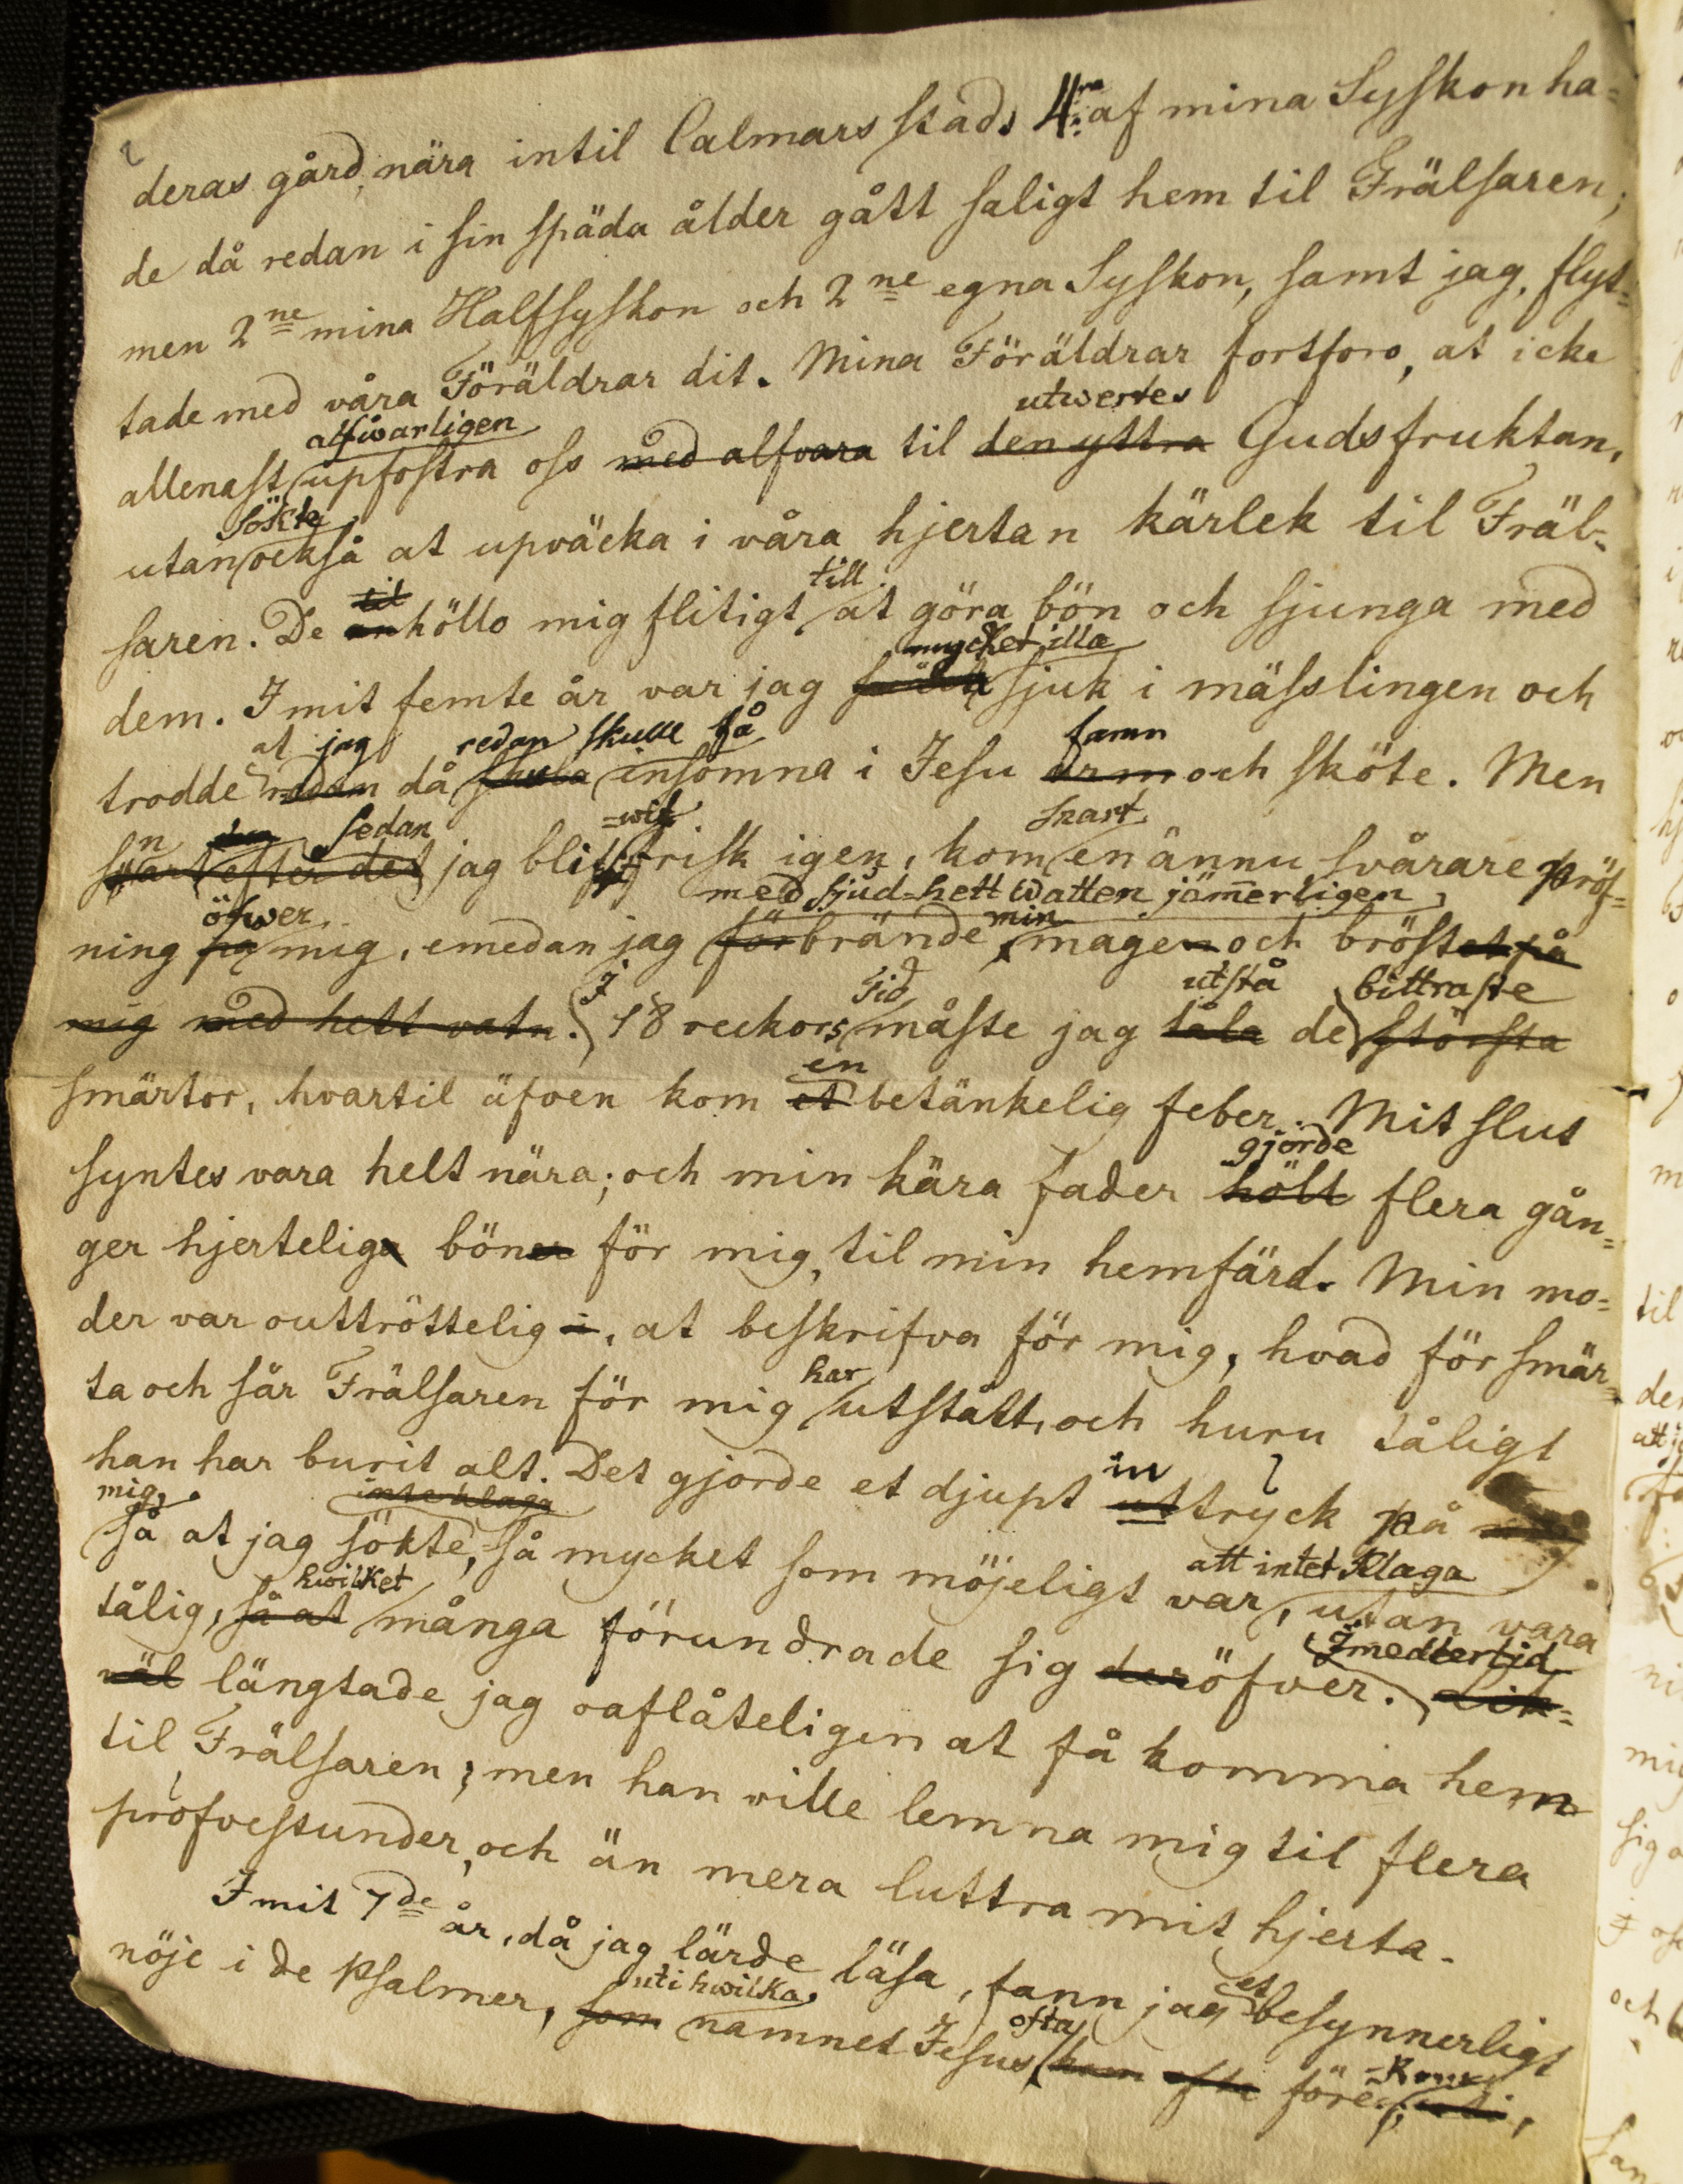 deras gård, nära intil Calmars stad. 4ra af mina Syskon ha=
de då redan i sin späda ålder gått saligt hem til Frälsaren;
men 2ne mina Halfsyskon och 2ne egna Syskon, samt jag, flyt=
tade med våra Föräldrar dit. Mina Föräldrar fortforo, at icke
alfwarligen utwertes
allenast upfostra oss med alfvara til den yttra Gudsfruktan,
sökte
utan också at upväcka i våra hjertan kärlek til Fräl=
til till
saren. De anhöllo mig flitigt at göra bön och sjunga med
mycket illa
dem. I mit femte år var jag sjuk i mässlingen och
at jag redan skulle få famn
trodde redan då skola insomna i Jesu arm och sköte. Men
n sedan =wit snart
snart efter det jag blif frisk igen, kom en ännu svårare pröf=
öfwer med sjud-hett watten jämerligen min
ning på mig, emedan jag förbrände magen och bröstet på
I Tid utstå bittraste
mig med hett vatn. 18 veckors måste jag tåla de största
en
smärtor, hvartil äfven kom et betänkelig feber. Mit slut
gjorde
syntes vara helt nära; och min kära fader hölt flera gån=
ger hjerteliga böner för mig, til min hemfärd. Min mo=
der var outtröttelig i, at beskrifva för mig, hvad för smär=
har
ta och sår Frälsaren för mig utstått, och huru tåligt
in
han har burit alt. Det gjorde et djupt uttryck på
mig, inte klaga
så at jag sökte, så mycket som möjeligt var, utan vara
hwilket att intet klaga
tålig, så at många förundrade sig deröfver. Lik=
Imedlertid
väl längtade jag oaflåteligen at få komma hem
til Frälsaren; men han ville lemna mig til flera
pröfvestunder, och än mera luttra mit hjerta.
I mit 7de år, då jag lärde läsa, fann jag et besynnerligt
uti hwilka ofta
nöje i de Psalmer, som namnet Jesus kom ofta före